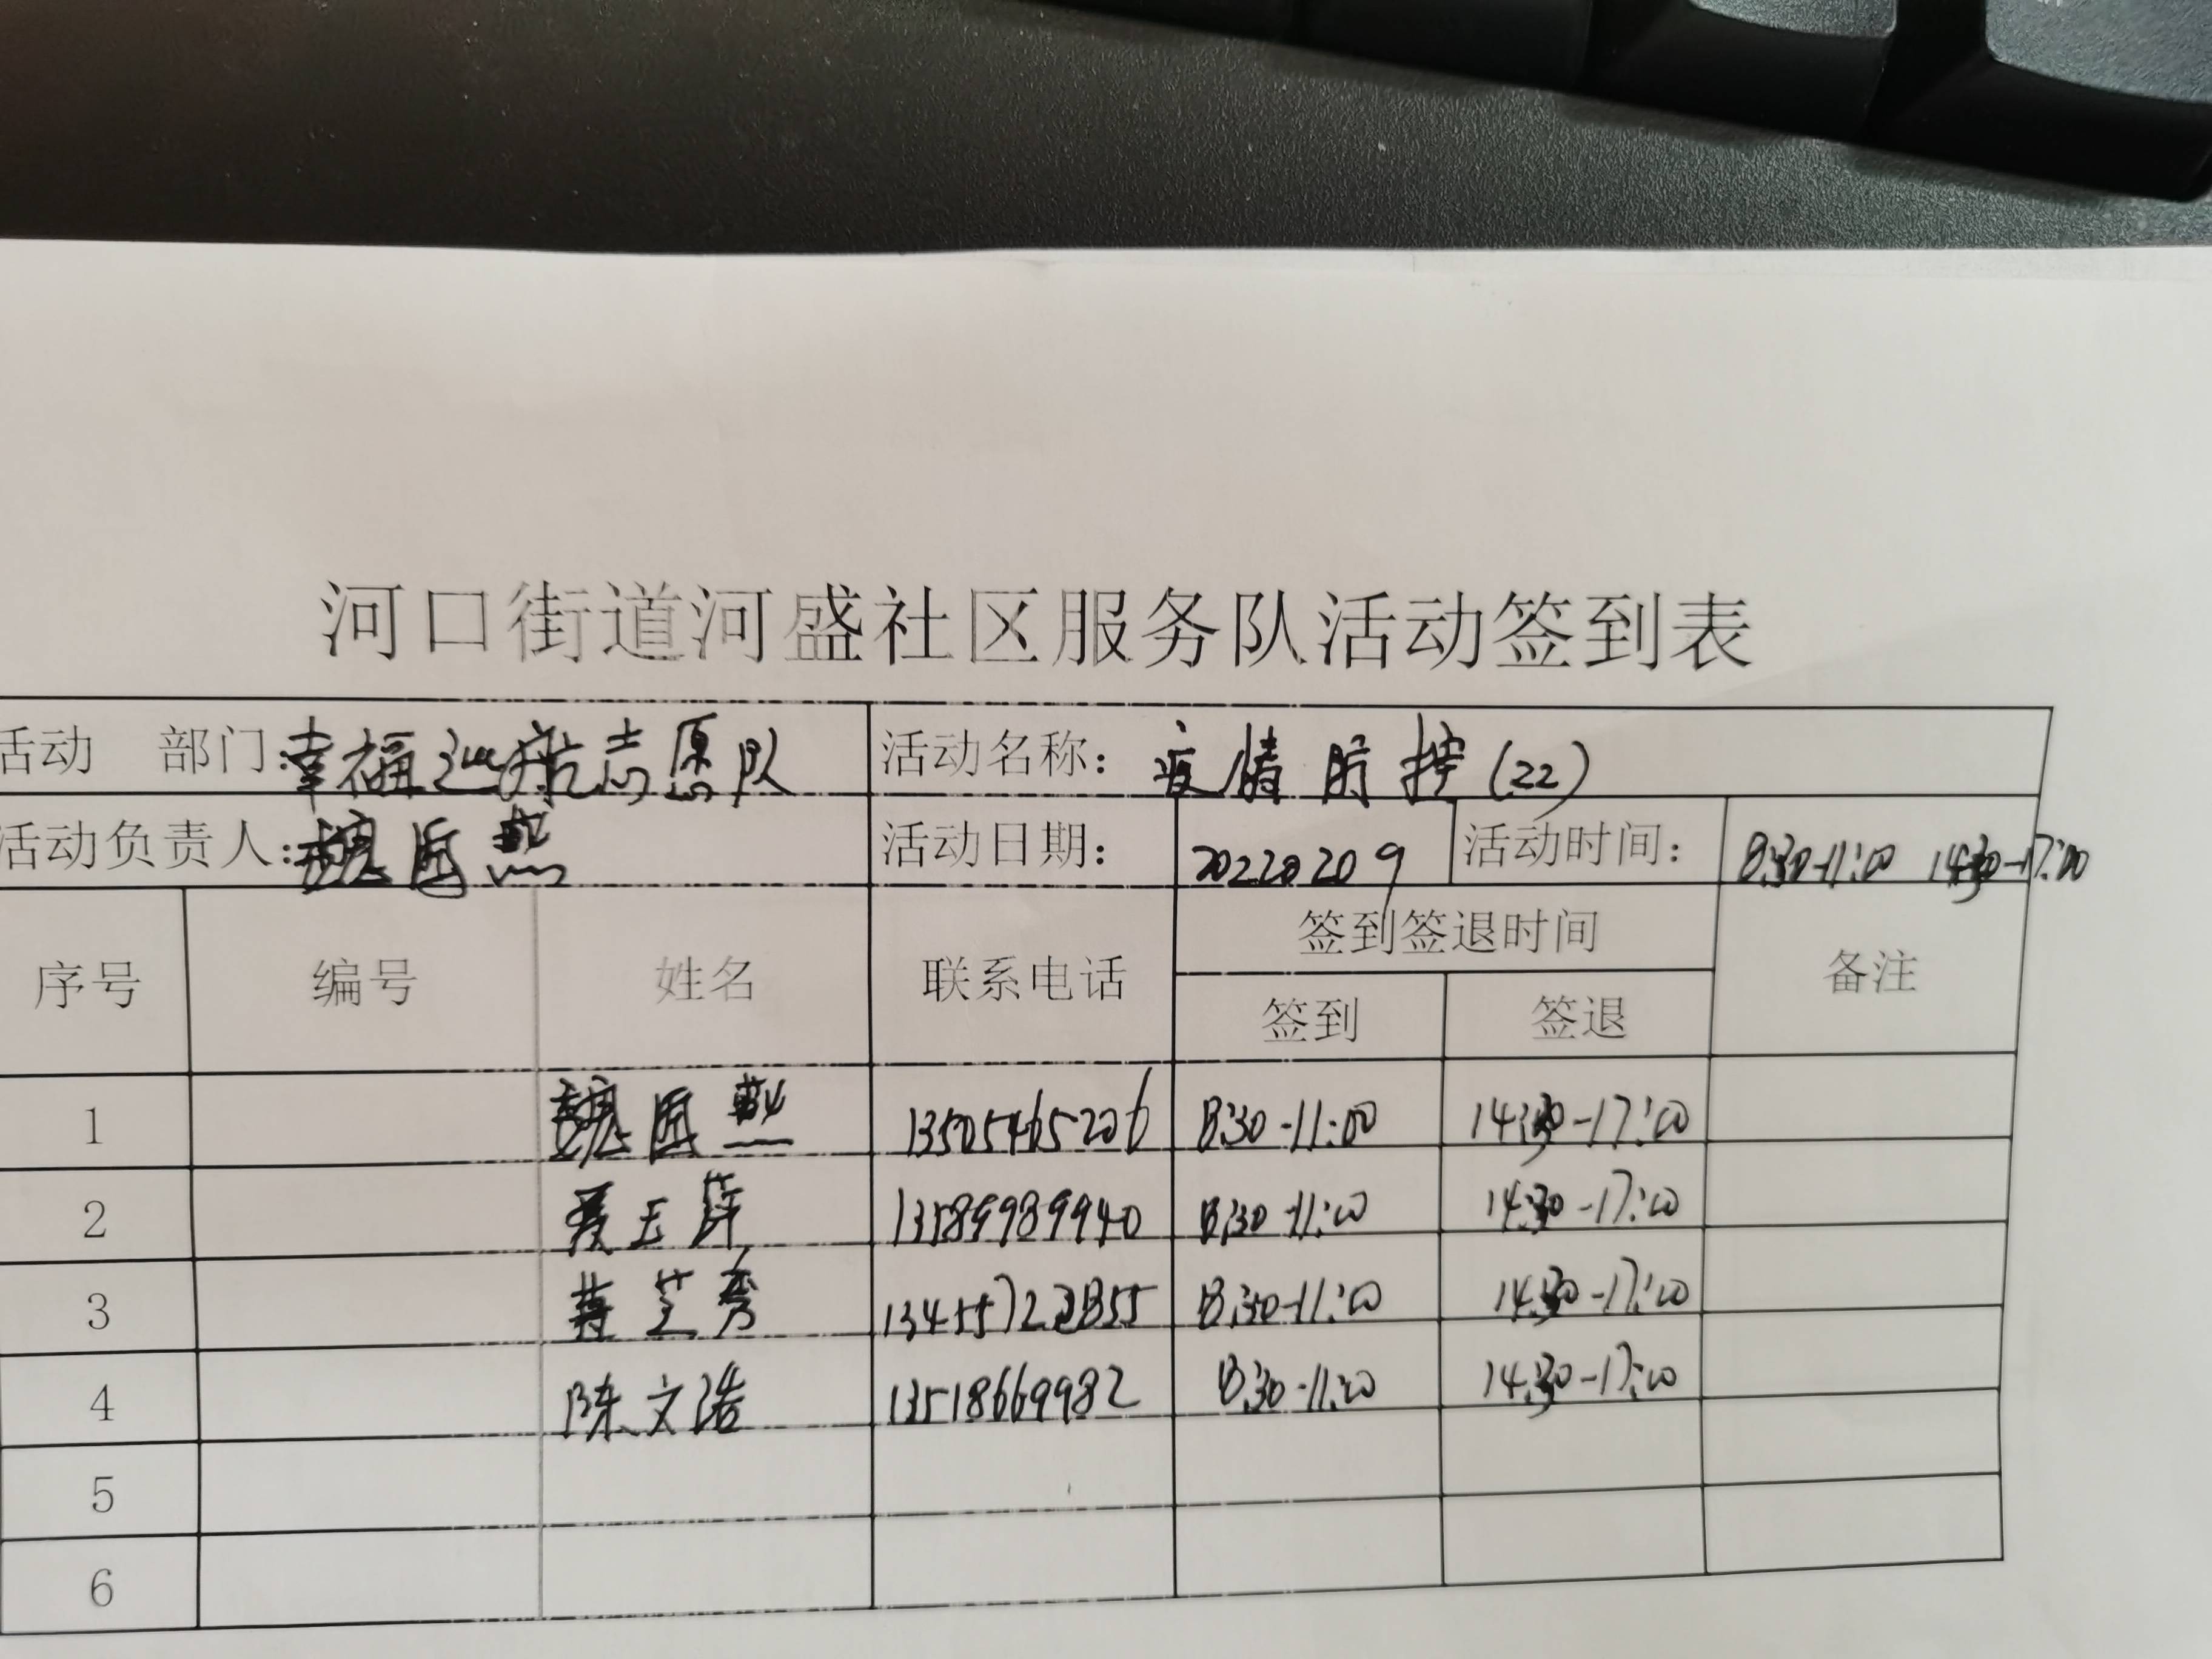 河口街道河盛社区服务队活动签到表
活动 部门:幸福巡航志愿队 活动名称: 疫情防控(22)
活动负责人:魏国燕 活动日期: 20220209 活动时间: 8:30-11:00 14:30-17:00
序号 编号 姓名 联系电话 签到签退时间 备注
签到 签退
1 魏国燕 13505465206 8:30-11:00 14:30-17:00
2 玉萍 13589989940 8:30-11:00 14:30-17:00
3 芝秀 8:30-11:00 14:30-17:00
4 陈文浩 13518669982 8:30-11:00 14:30-17:00
5
6